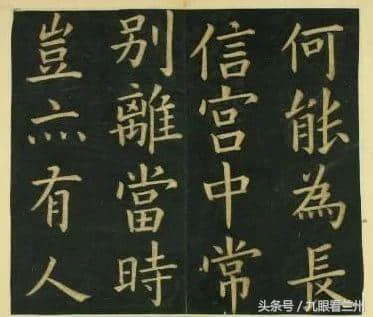 何能為長
信宮中常
别離當時
豈亦有人
头条号/九眼看兰州